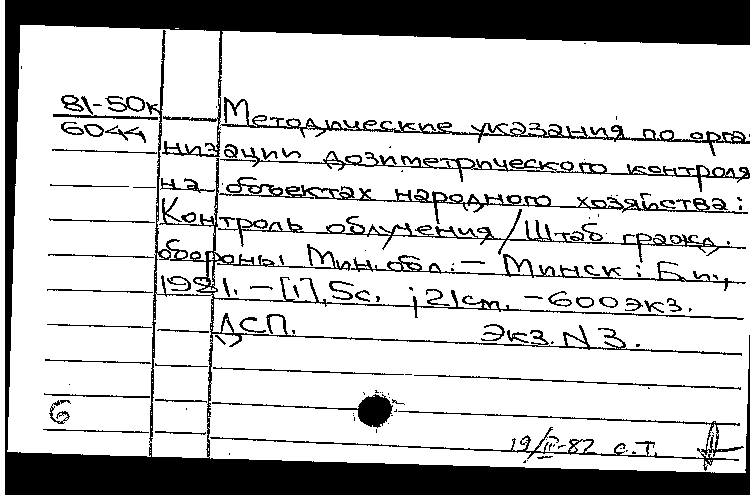 81-50к
6044
Методические указания по орга-
низации дозиметрического контроля
на объектах народного хозяйства:
Контроль облучения/Штаб гражд.
обороны Мин. обл. – Минск: Б.и.,
1981. – [1], 5с. ; 21 см. – 600 экз.
ДСП. Экз. N 3.
6
19/II-82 с.т.